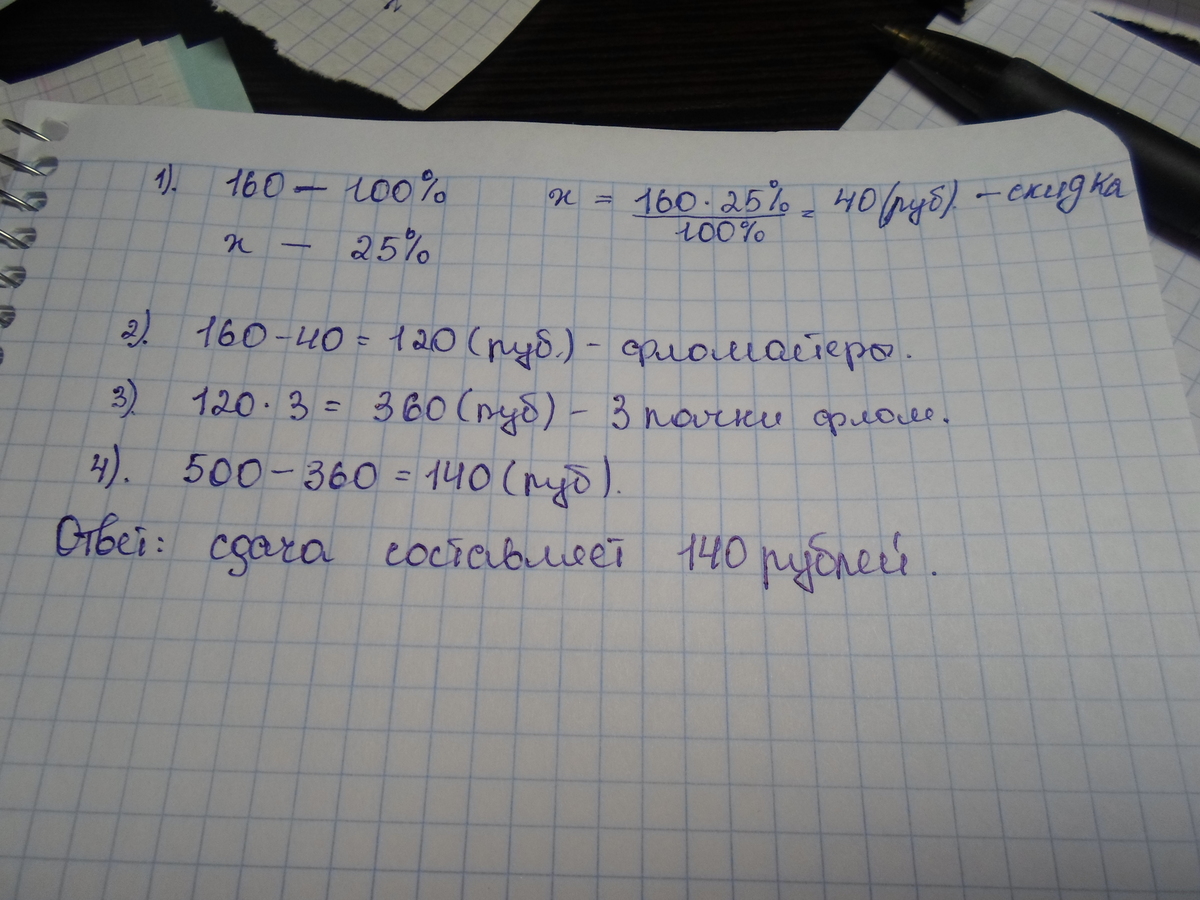 1). 160 — 100% x = 160 · 25% / 100% = 40 (руб) – скидка
x — 25%
2). 160 – 40 = 120 (руб.) – фломастеры.
3) 120 · 3 = 360 (руб) – 3 пачки флом.
4). 500 – 360 = 140 (руб).
Ответ: сдача составляет 140 рублей.